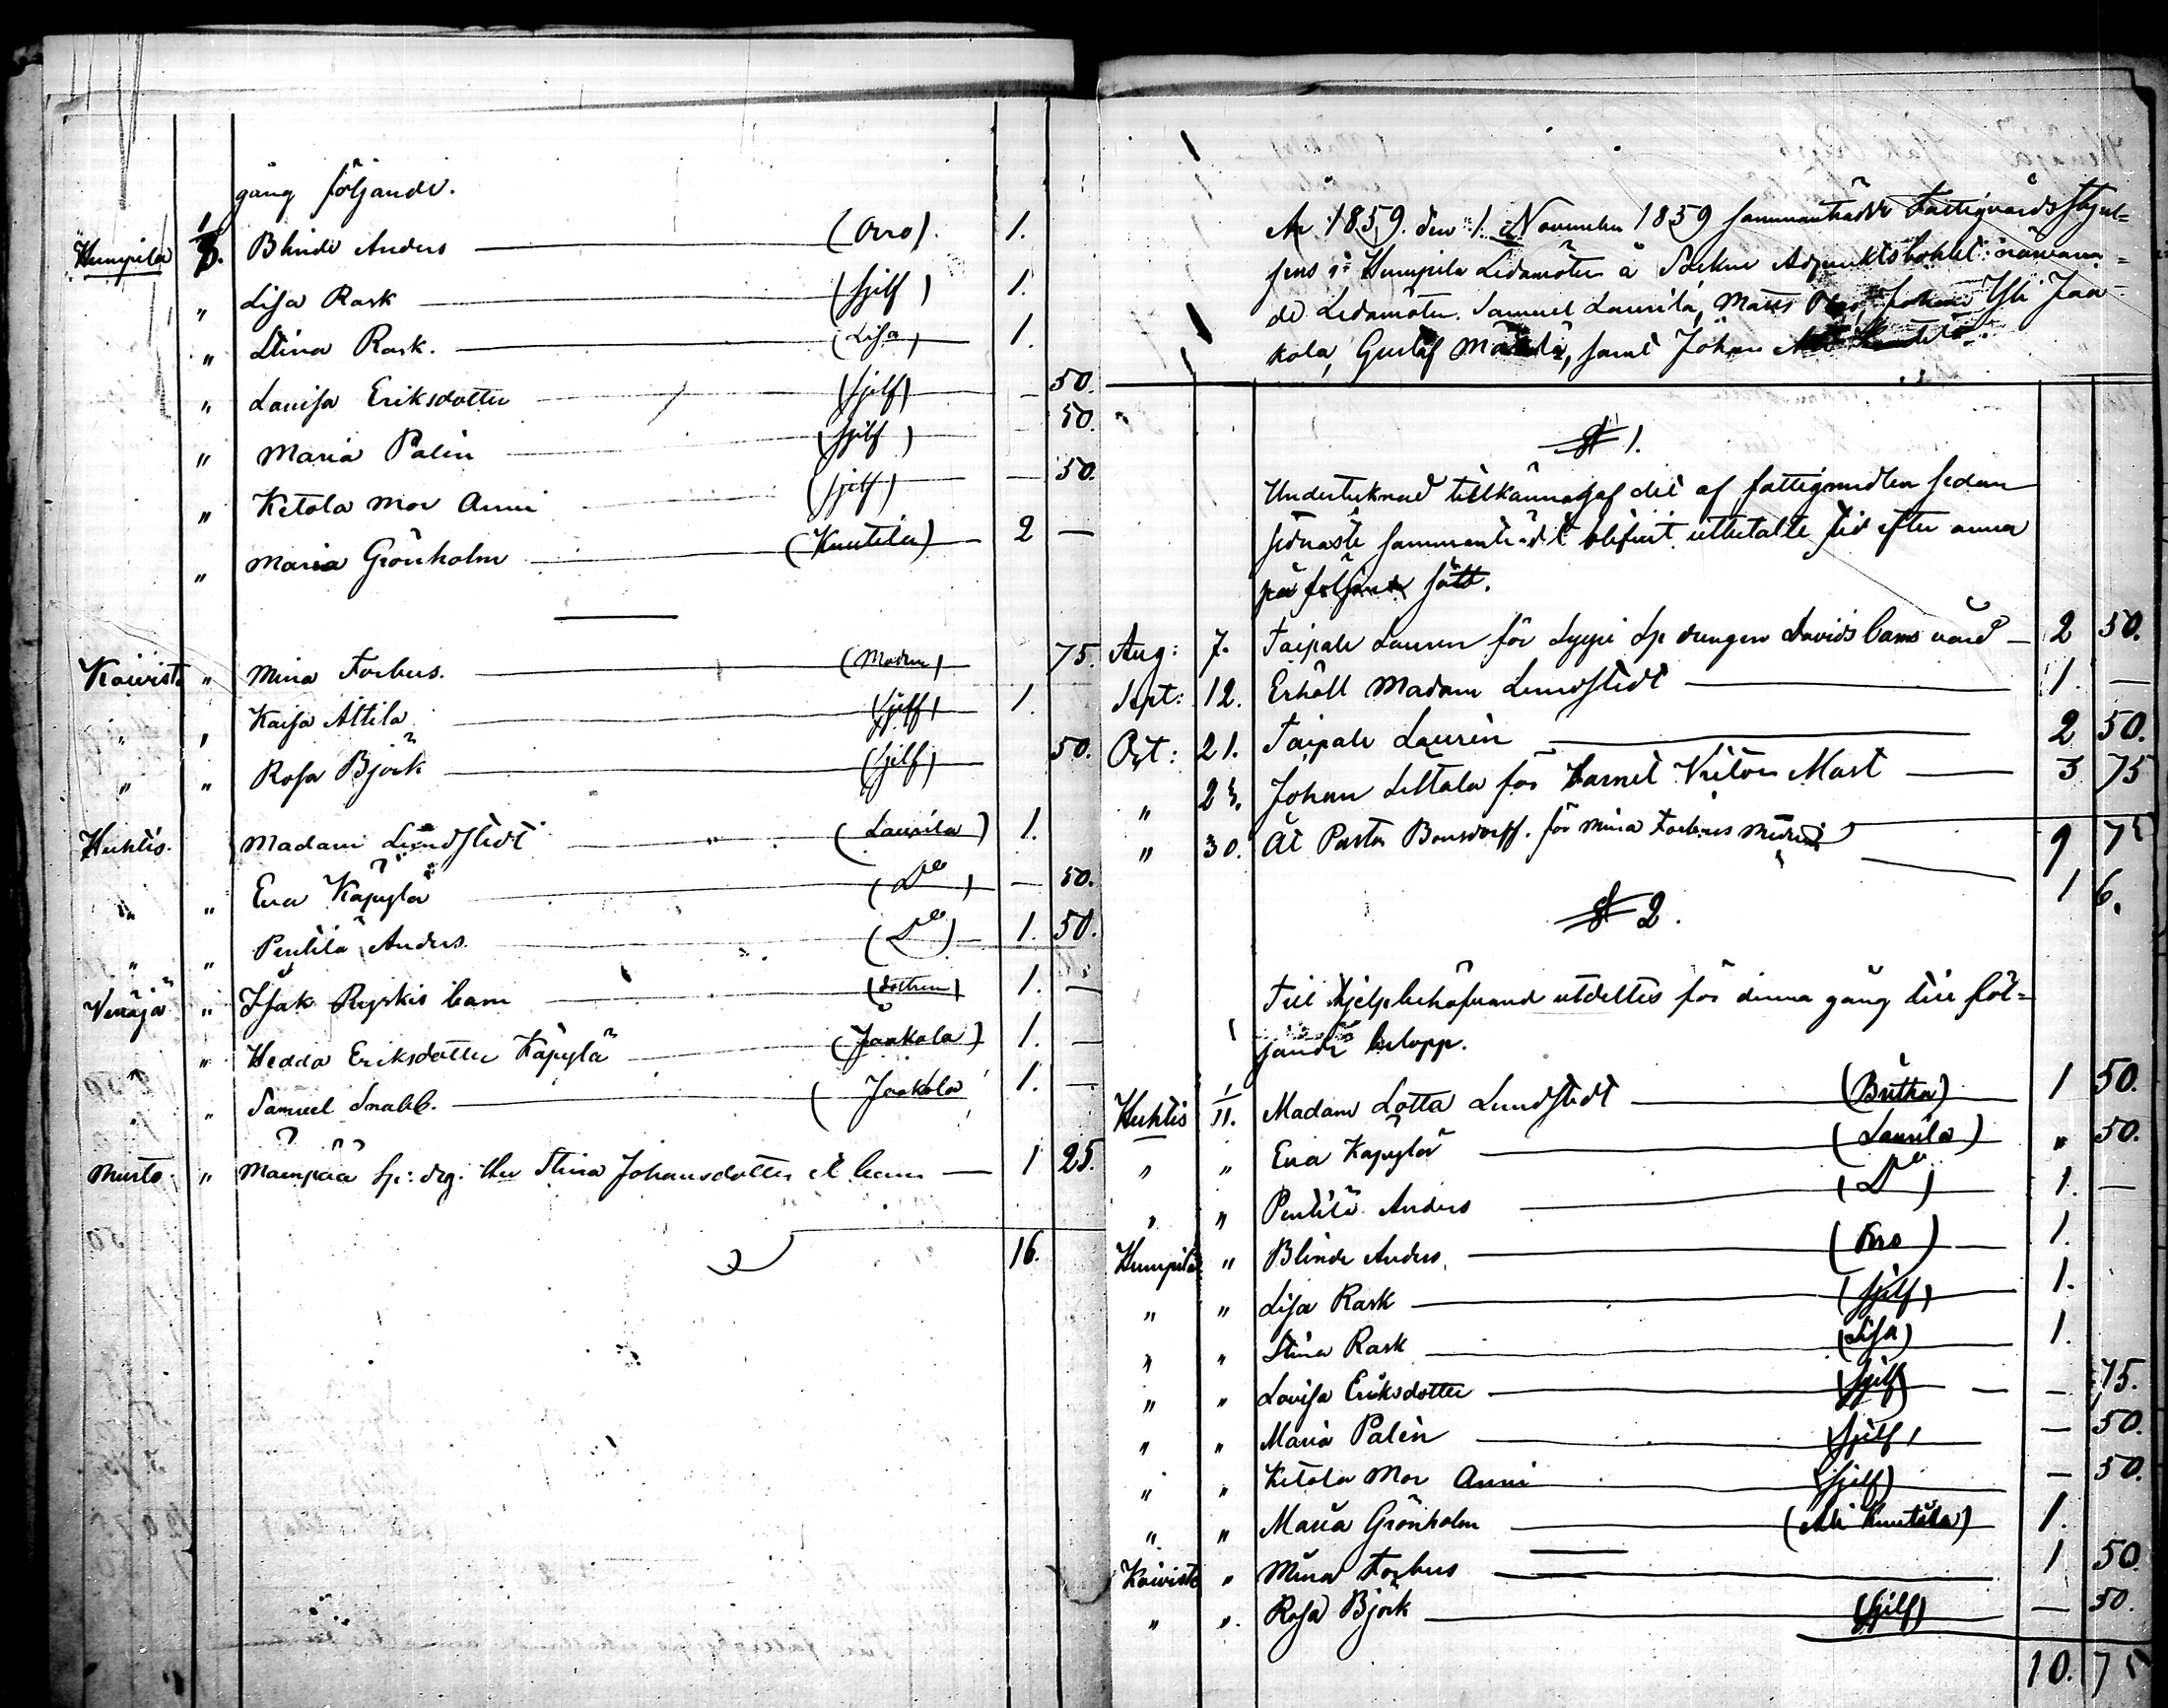 gång följande.
Humpila 1/8. Blinde Anders (Orro). 1.
" Lisa Rask (sjelf) 1.
" Stina Rask. (Lisa) 1.
" Lovisa Eriksdotter (sjelf) — 50.
" Maria Palin (sjelf) — 50.
" Ketola Mor Anni (sjelf) — 50.
" Maria Grönholm (Knutila) 2 —
Koivisto " Mina Forbus. (Modren) 75.
" " Kaisa Attila (sjelf) 1.
" " Rosa Björk (sjelf) 50.
Huhtis. Madam Lundstedt " (Laurila) 1.
" " Eva Käpylä (Do) — 50.
" " Pentilä Anders. (Do) 1. 50.
Venäjä " Isak Ryskis barn (dottren) 1. —
" " Hedda Eriksdotter Käpylä (Jaakola) 1. —
" " Samuel Snabb. (Jaakola 1. —
Murto. " Mäenpää sp: drg. Stina Johansdotter barn — 1 25.
16.
År 1859. den 1. November 1859 sammanträdde Fattigvårdsstyrel=
sens i Humpila Ledamöter å Sockne Adjunktsbohlet: närvaran=
de Ledamöter. Samuel Laurila, Matts Johan Yli Jaa=
kola, Gustaf samt Johan
§ 1.
Undertecknad tillkännagaf det af fattigmedlen sedan
sednaste sammanträdet blifvit utbetalte tid efter annan
på följande sätt.
Aug: 7. Taipale Lauren för Lyypi Sp drengen Davids barns vård — 2 50.
Sept: 12. Erhöll Madam Lundstedt 1. —
Oct: 21. Taipale Laurén 2 50.
" 23. Johan för barnet Viktor Mart 3 75
" 30. Åt Pastor Bonsdorff. för Mina Forbus 9 75
1 6.
§ 2.
Till hjelpbehöfvand utdeltes för denna gång till föl=
jande belopp.
Huhtis 1/11. Madam Lotta Lundstedt (Britha) 1 50.
" " Eva Käpylä (Laurila) " 50.
" " Pentilä Anders (Do) 1. —
Humpila " Blinde Anders, (Orro) 1.
" " Lisa Rask (sjelf) 1.
" " Stina Rask (Lisa) 1.
" " Lovisa Eriksdotter (sjelf) — 75.
" " Maria Palin (sjelf) — 50.
" " Ketola Mor Anni (sjelf) — 50.
" " Maria Grönholm (Ali Knutila) 1.
Koivisto " Mina Forbus 1 50
" " Rosa Björk (sjelf) — 50.
10. 75